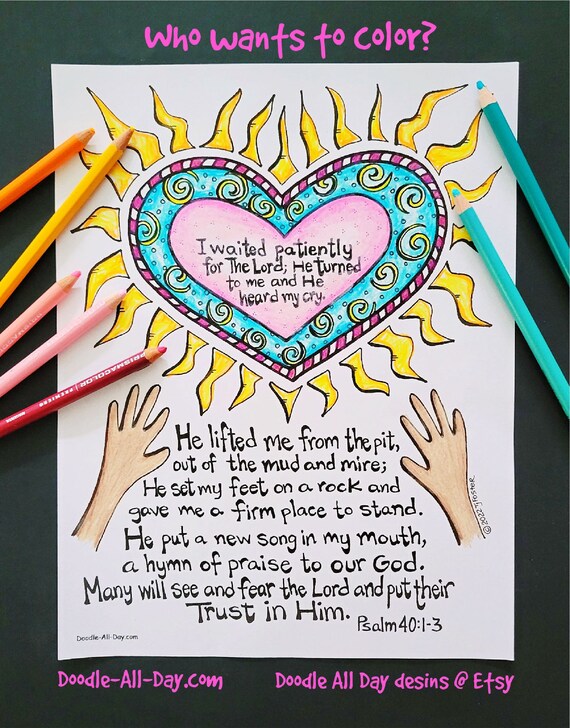 Who wants to color?
I waited patiently
for The Lord; He turned
to me and He
heard my cry.
He lifted me from the pit,
out of the mud and mire;
He set my feet on a rock and
gave me a firm place to stand.
He put a new song in my mouth,
a hymn of praise to our God.
Many will see and fear the Lord and put their
Trust in Him.
Psalm 40:1-3
© 2022 JFoster
PRISMACOLOR PREMIER
Doodle-All-Day.com
Doodle-All-Day.com
Doodle All Day desins @ Etsy